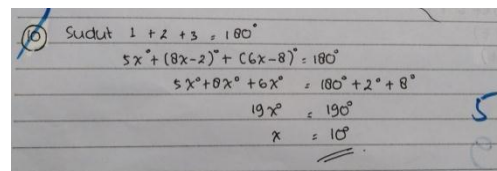 10 Sudut 1 + 2 + 3 = 180°
5x° + (8x-2)° + (6x-8)° = 180°
5x° + 8x° + 6x° = 180° + 2° + 8°
19x° = 190°
x = 10°
5